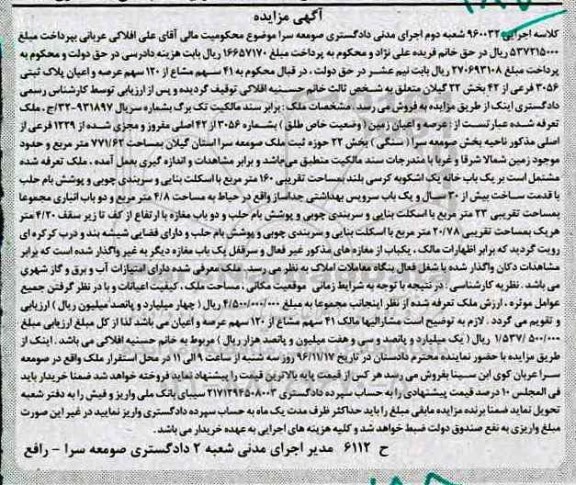 آگهی مزایده
کلاسه اجرایی ۹۶۰۰۳۲ شعبه دوم اجرای مدنی دادگستری صومعه سرا موضوع محکومیت مالی آقای علی افلاکی عربانی بپرداخت مبلغ
۵۳۷۲۱۵۰۰۰ ریال در حق خانم فریده علی نژاد و محکوم به پرداخت مبلغ ۱۶۶۵۷۱۷۰ ریال بابت هزینه دادرسی در حق دولت و محکوم به
پرداخت مبلغ ۲۷۰۶۹۳۱۰۸ ریال بابت نیم عشر در حق دولت ، در قبال محکوم به ۴۱ سهم مشاع از ۱۲۰ سهم عرصه و اعیان پلاک ثبتی
۳۰۵۶ فرعی از ۴۲ بخش ۲۲ گیلان متعلق به شخص ثالث خانم حسنیه افلاکی توقیف گردیده و پس از ارزیابی توسط کارشناس رسمی
دادگستری اینک از طریق مزایده به فروش می رسد . مشخصات ملک : برابر سند مالکیت تک برگ بشماره سریال ۹۳۱۸۹۷-ج/۳۲ ، ملک
تعرفه شده عبارتست از : عرصه و اعیان زمین ( وضعیت خاص طلق ) بشماره ۳۰۵۶ از ۴۲ اصلی مفروز و مجزی شده از ۱۲۲۹ فرعی از
اصلی مذکور ناحیه بخش صومعه سرا ( سنگی ) بخش ۲۲ حوزه ثبت ملک صومعه سرا استان گیلان بمساحت ۷۷۱/۶۲ متر مربع و حدود
موجود زمین شمالا شرقا و غربا با مندرجات سند مالکیت منطبق می‌باشد و برابر مشاهدات و اندازه گیری بعمل آمده ، ملک تعرفه شده
مشتمل است بر یک باب خانه یک اشکوبه کرسی بلند بمساحت تقریبی ۱۶۰ متر مربع با اسکلت بنایی و سربندی چوبی و پوشش بام حلب
با قدمت ساخت بیش از ۳۰ سال و یک باب سرویس بهداشتی جداساز واقع در حیاط به مساحت ۴/۸ متر مربع و دو باب انباری مجموعا
بمساحت تقریبی ۲۳ متر مربع با اسکلت بنایی و سربندی چوبی و پوشش بام حلب و دو باب مغازه با ارتفاع از کف تا زیر سقف ۴/۲۰ متر
هریک بمساحت تقریبی ۲۰/۷۸ متر مربع با اسکلت بنایی و سربندی چوبی و پوشش بام حلب و دارای فضایی شیشه بند و درب کرکره ای
رویت گردید که برابر اظهارات مالک ، یکباب از مغازه های مذکور غیر فعال و سرقفل یک باب مغازه دیگر به غیر واگذار شده است که برابر
مشاهدات دکان واگذار شده با شغل فعال بنگاه معاملات املاک به نظر می رسد. ملک معرفی شده دارای امتیازات آب و برق و گاز شهری
می باشد . نظریه کارشناسی . در نتیجه با توجه به شرایط زمانی ، موقعیت مکانی ، مساحت ملک ، کیفیت اعیانات و با در نظر گرفتن جمیع
عوامل موثره ، ارزش ملک تعرفه شده از نظر اینجانب مجموعا به مبلغ ۴/۵۰۰/۰۰۰/۰۰۰ ریال ( چهار میلیارد و پانصد میلیون ریال ) ارزیابی
و تقویم می گردد . لازم به توضیح است مشارالیها مالک ۴۱ سهم مشاع از ۱۲۰ سهم عرصه و اعیان می باشد لذا از کل مبلغ ارزیابی مبلغ
۱/۵۳۷/۵۰۰/۰۰۰ ریال ( یک میلیارد و پانصد و سی و هفت میلیون و پانصد هزار ریال ) مربوط به خانم حسنیه افلاکی می باشد . اینک از
طریق مزایده با حضور نماینده محترم دادستان در تاریخ ۹۶/۱۱/۱۷ روز سه شنبه از ساعت ۹ الی ۱۱ در محل استقرار ملک واقع در صومعه
سرا عربان کوی ابن سینا بفروش می رسد هر کس از قیمت پایه بالاترین قیمت را پیشنهاد نماید فروخته خواهد شد ضمنا خریدار باید
فی المجلس ۱۰ درصد قیمت پیشنهادی را به حساب سپرده دادگستری ۲۱۷۱۲۹۴۵۰۸۰۰۳ سیبای بانک ملی واریز و فیش را به دفتر شعبه
تحویل نماید ضمنا برنده مزایده مابقی مبلغ را باید حداکثر ظرف مدت یک ماه به حساب سپرده دادگستری واریز نمایید در غیر این صورت
مبلغ واریزی به نفع صندوق دولت ضبط خواهد شد و کلیه هزینه های اجرایی به عهده خریدار می باشد .
ح ۶۱۱۲ مدیر اجرای مدنی شعبه ۲ دادگستری صومعه سرا – رافع